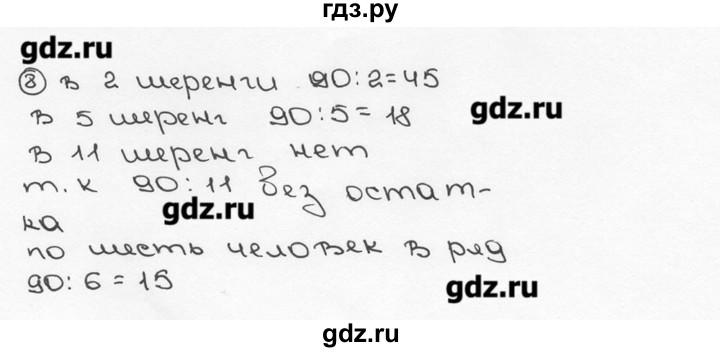 гдз.ру
gdz.ru
⑧ в 2 шеренги 90:2=45
в 5 шеренг 90:5=18
gdz.ru
в 11 шеренг нет
т.к 90:11 без остат-
gdz.ru
ка
по шесть человек в ряд
90:6=15
gdz.ru
gdz.ru